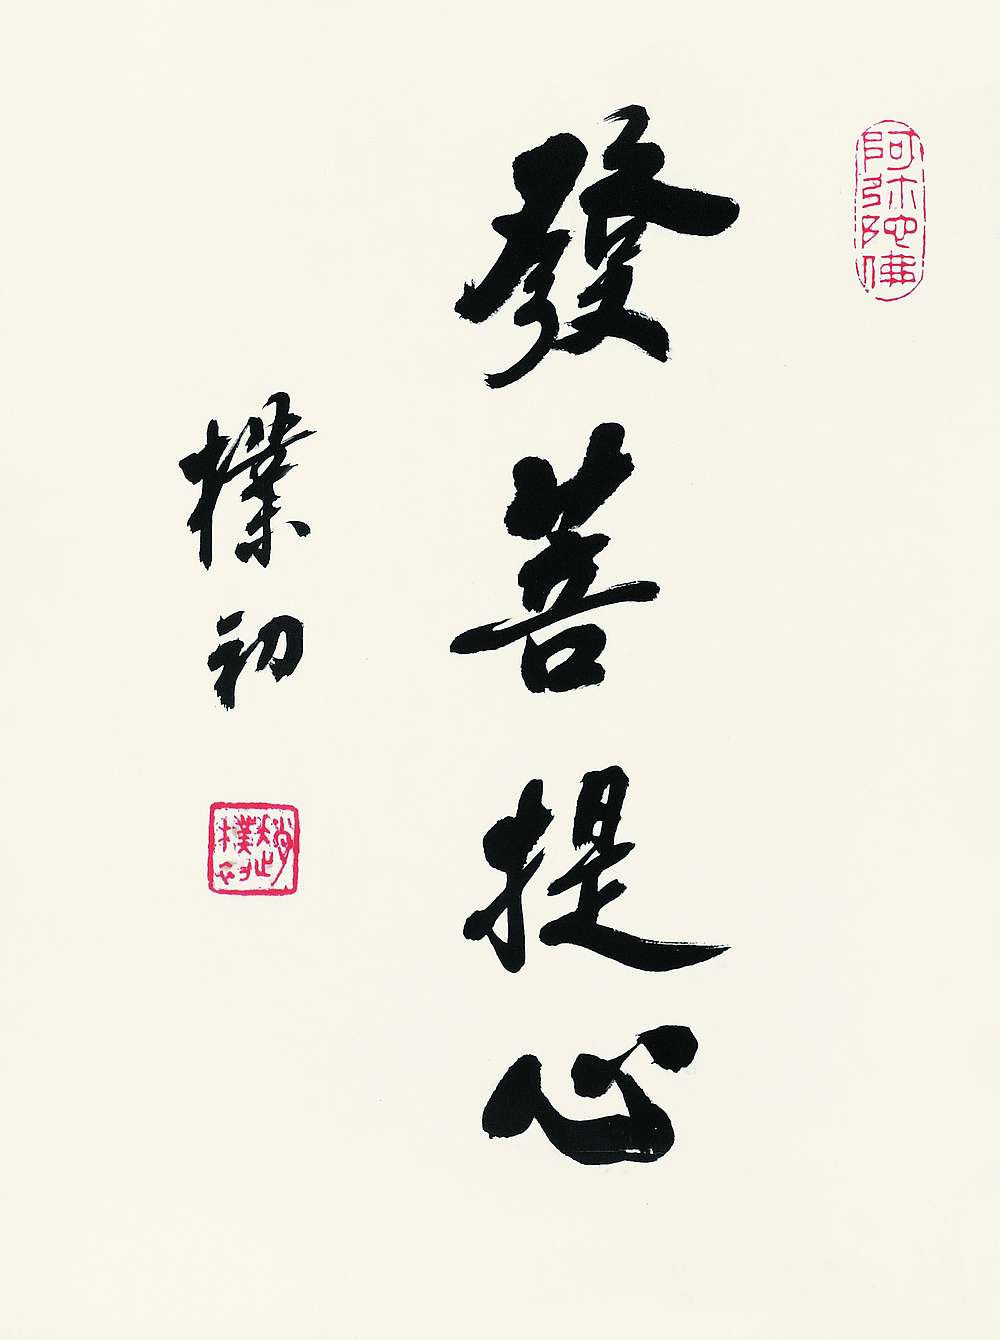 阿彌陀佛
發菩提心
樸初
趙樸初